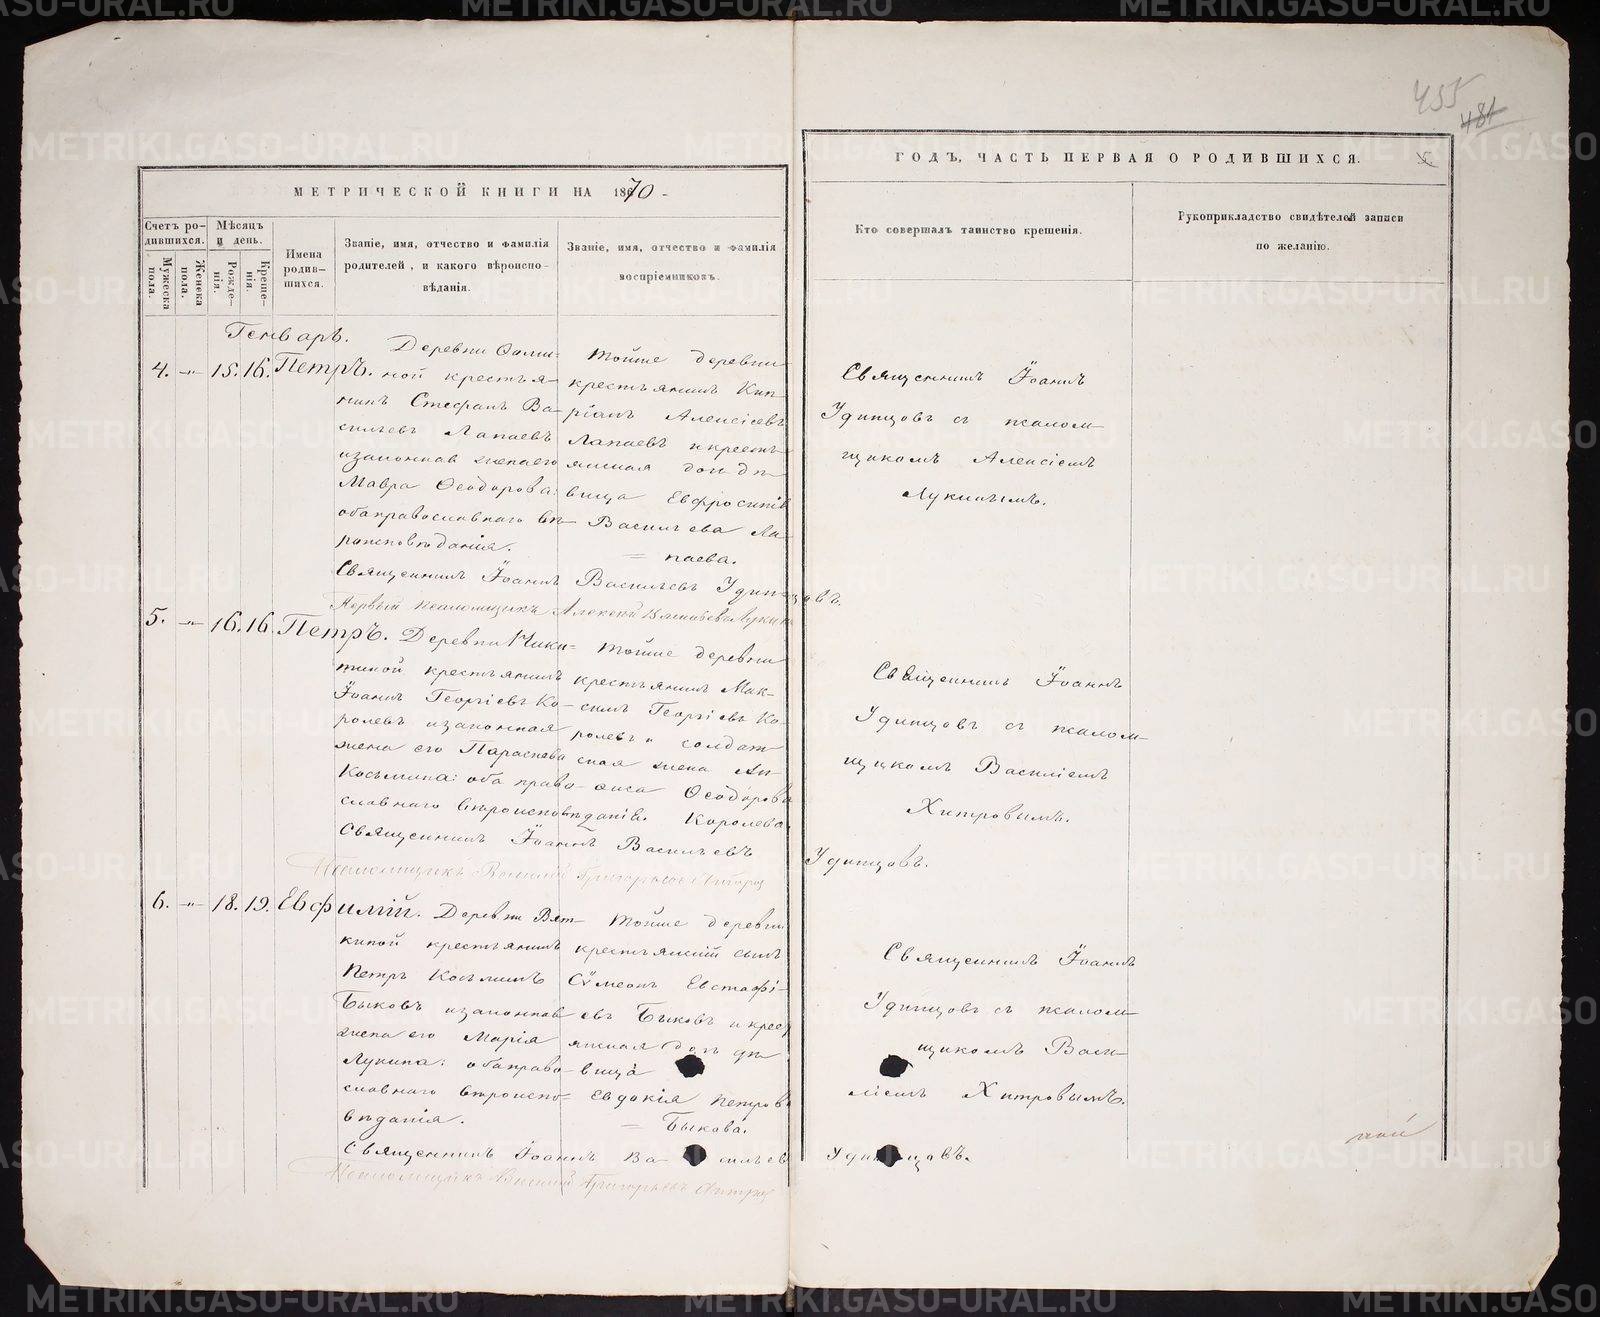 455
481
МЕТРИЧЕСКОЙ КНИГИ НА 1870
ГОДЪ, ЧАСТЬ ПЕРВАЯ О РОДИВШИХСЯ.
Счетъ ро-
дившихся.
Мужеска пола.
Женска пола.
Мѣсяцъ
и день.
Рожде-
нія.
Креще-
нія.
Имена
родив-
шихся.
Званіе, имя, отчество и фамилія
родителей, и какого вѣроиспо-
вѣданія.
Званіе, имя, отчество и фамилія
воспріемниковъ.
Кто совершалъ таинство крещенія.
Рукоприкладство свидѣтелей записи
по желанію.
Генварь.
4. -"- 15. 16. Петръ.
Деревни
ной крестья-
нинъ Стефанъ Ва-
сильевъ Лапаевъ
изаконная жена его
Мавра Ѳеодорова:
оба православнаго вѣ-
роисповѣданія.
Тойже деревни
крестьянинъ Кип-
ріанъ Алексіевъ
Лапаевъ и кресть-
янская дочь дѣ-
вица Евфросинія
Васильева Ла-
= паева.
Священникъ Іоаннъ
Удинцовъ съ псалом-
щикомъ Алексіемъ
Лукинымъ.
Священникъ Іоаннъ Васильевъ Удинцовъ.
Первый псаломщикъ Алексей Лукинъ
5. -"- 16. 16. Петръ.
Деревни Чики-
шиной крестьянинъ
Іоаннъ Георгіевъ Ко-
ролевъ изаконная
жена его Параскева
Косьмина: оба право-
славнаго вѣроисповѣданія.
Тойже деревни
крестьянинъ Мак-
симъ Георгіевъ Ко-
ролевъ и солдат-
ская жена Ан-
фиса Ѳеодорова
Королева.
Священникъ Іоаннъ
Удинцовъ съ псалом-
щикомъ Василіемъ
Хитровымъ.
Священникъ Іоаннъ Васильевъ Удинцовъ.
Псаломщикъ Василий Григорьевъ Хитровъ
6. -"- 18. 19. Евфимій.
Деревни Вят-
киной крестьянинъ
Петръ Косьминъ
Быковъ изаконная
жена его Марія
Лукина: оба право-
славнаго вѣроиспо-
вѣданія.
Тойже деревни
крестьянскій сынъ
Сѵмеонъ Евстафі-
евъ Быковъ и крест
янская дочь дѣ-
вица
Евдокія Петрова
= Быкова.
Священникъ Іоаннъ
Удинцовъ съ псалом-
щикомъ Васи-
ліемъ Хитровымъ.
Священникъ Іоаннъ Васильевъ Удинцовъ.
Псаломщикъ Василий Григорьевъ Хитровъ
METRIKI.GASO-URAL.RU